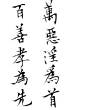 萬惡淫為首
百善孝為先